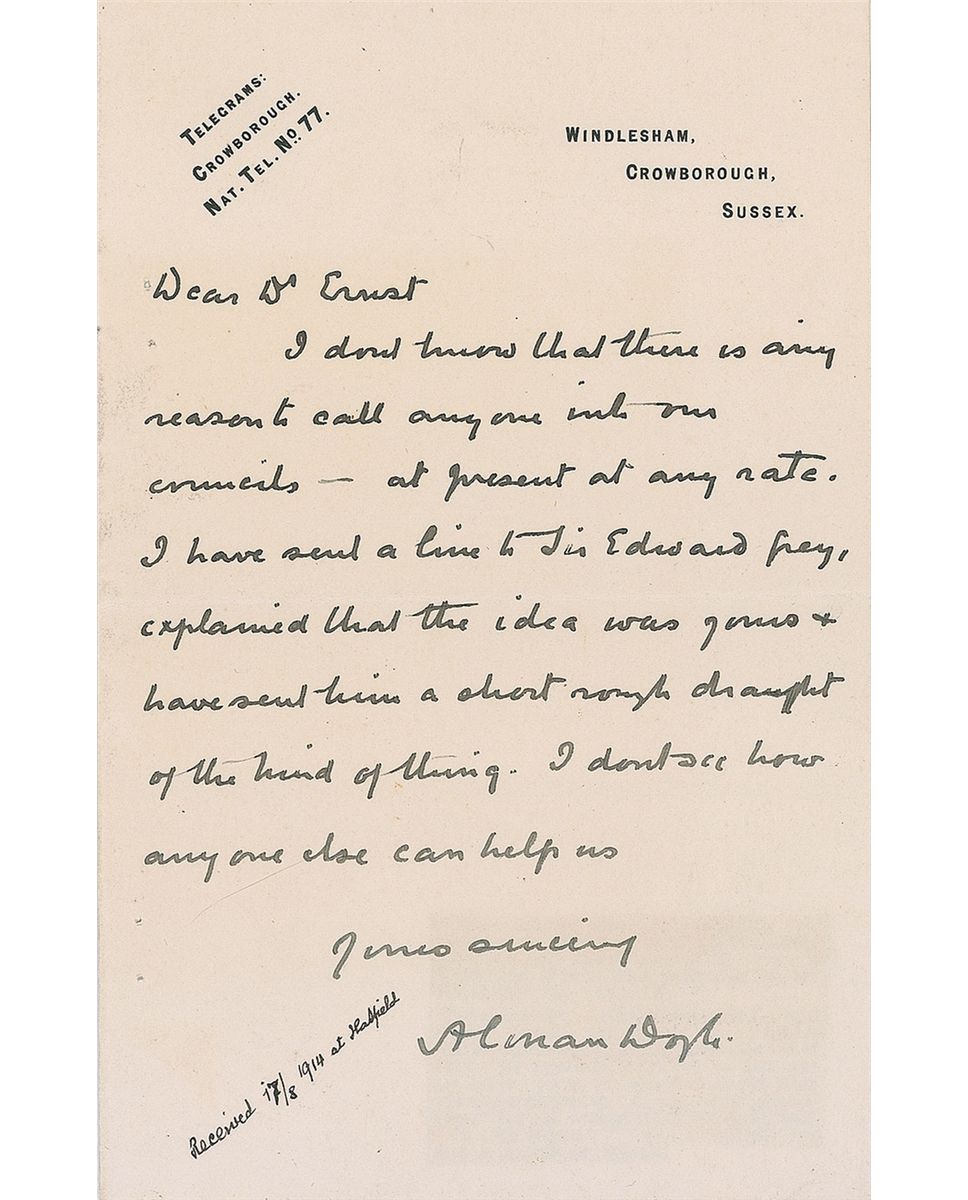 TELEGRAMS:
CROWBOROUGH.
NAT. TEL. No. 77.
WINDLESHAM,
CROWBOROUGH,
SUSSEX.
Dear Dr Ernst
I dont know that there is any
reason to call anyone into our
councils — at present at any rate.
I have sent a line to Sir Edward Grey,
explained that the idea was yours &
have sent him a short rough draught
of the kind of thing. I dont see how
anyone else can help us
Yours sincerely
A Conan Doyle.
Received 17/8 1914 at Hatfield